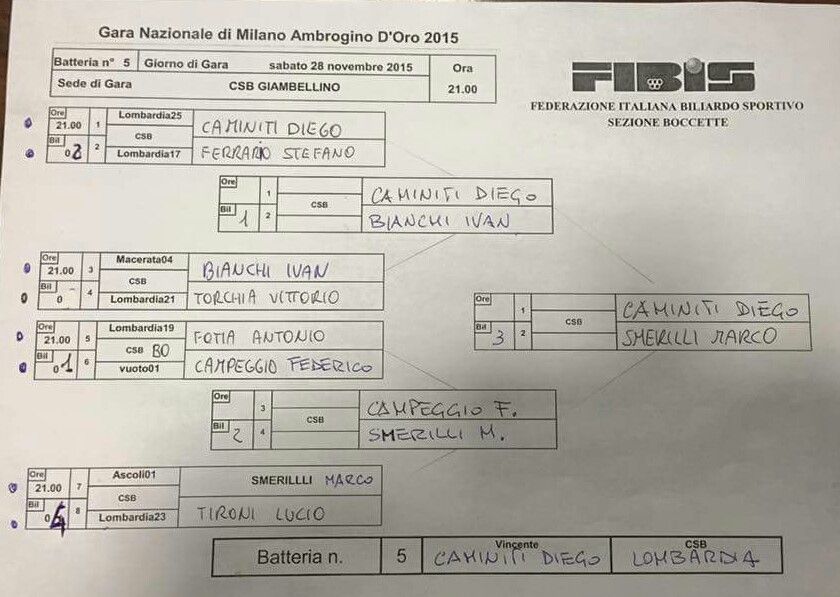 Gara Nazionale di Milano Ambrogino D'Oro 2015
Batteria n° 5 Giorno di Gara sabato 28 novembre 2015 Ora
Sede di Gara CSB GIAMBELLINO 21.00
FIBIS
FEDERAZIONE ITALIANA BILIARDO SPORTIVO
SEZIONE BOCCETTE
Ore 21.00 1 Lombardia25 CAMINITI DIEGO
CSB
Bil 2 Lombardia17 FERRARIO STEFANO
Ore 1 CAMINITI DIEGO
CSB
Bil 1 2 BIANCHI IVAN
Ore 21.00 3 Macerata04 BIANCHI IVAN
CSB
Bil 0 4 Lombardia21 TORCHIA VITTORIO
Ore 1 CAMINITI DIEGO
CSB
Bil 3 2 SMERILLI MARCO
Ore 21.00 5 Lombardia19 FOTIA ANTONIO
CSB BO
Bil 0 1 6 vuoto01 CAMPEGGIO FEDERICO
Ore 3 CAMPEGGIO F.
CSB
Bil 2 4 SMERILLI M.
Ore 21.00 7 Ascoli01 SMERILLLI MARCO
CSB
Bil 0 8 Lombardia23 TIRONI LUCIO
Batteria n. 5 Vincente CAMINITI DIEGO CSB LOMBARDIA